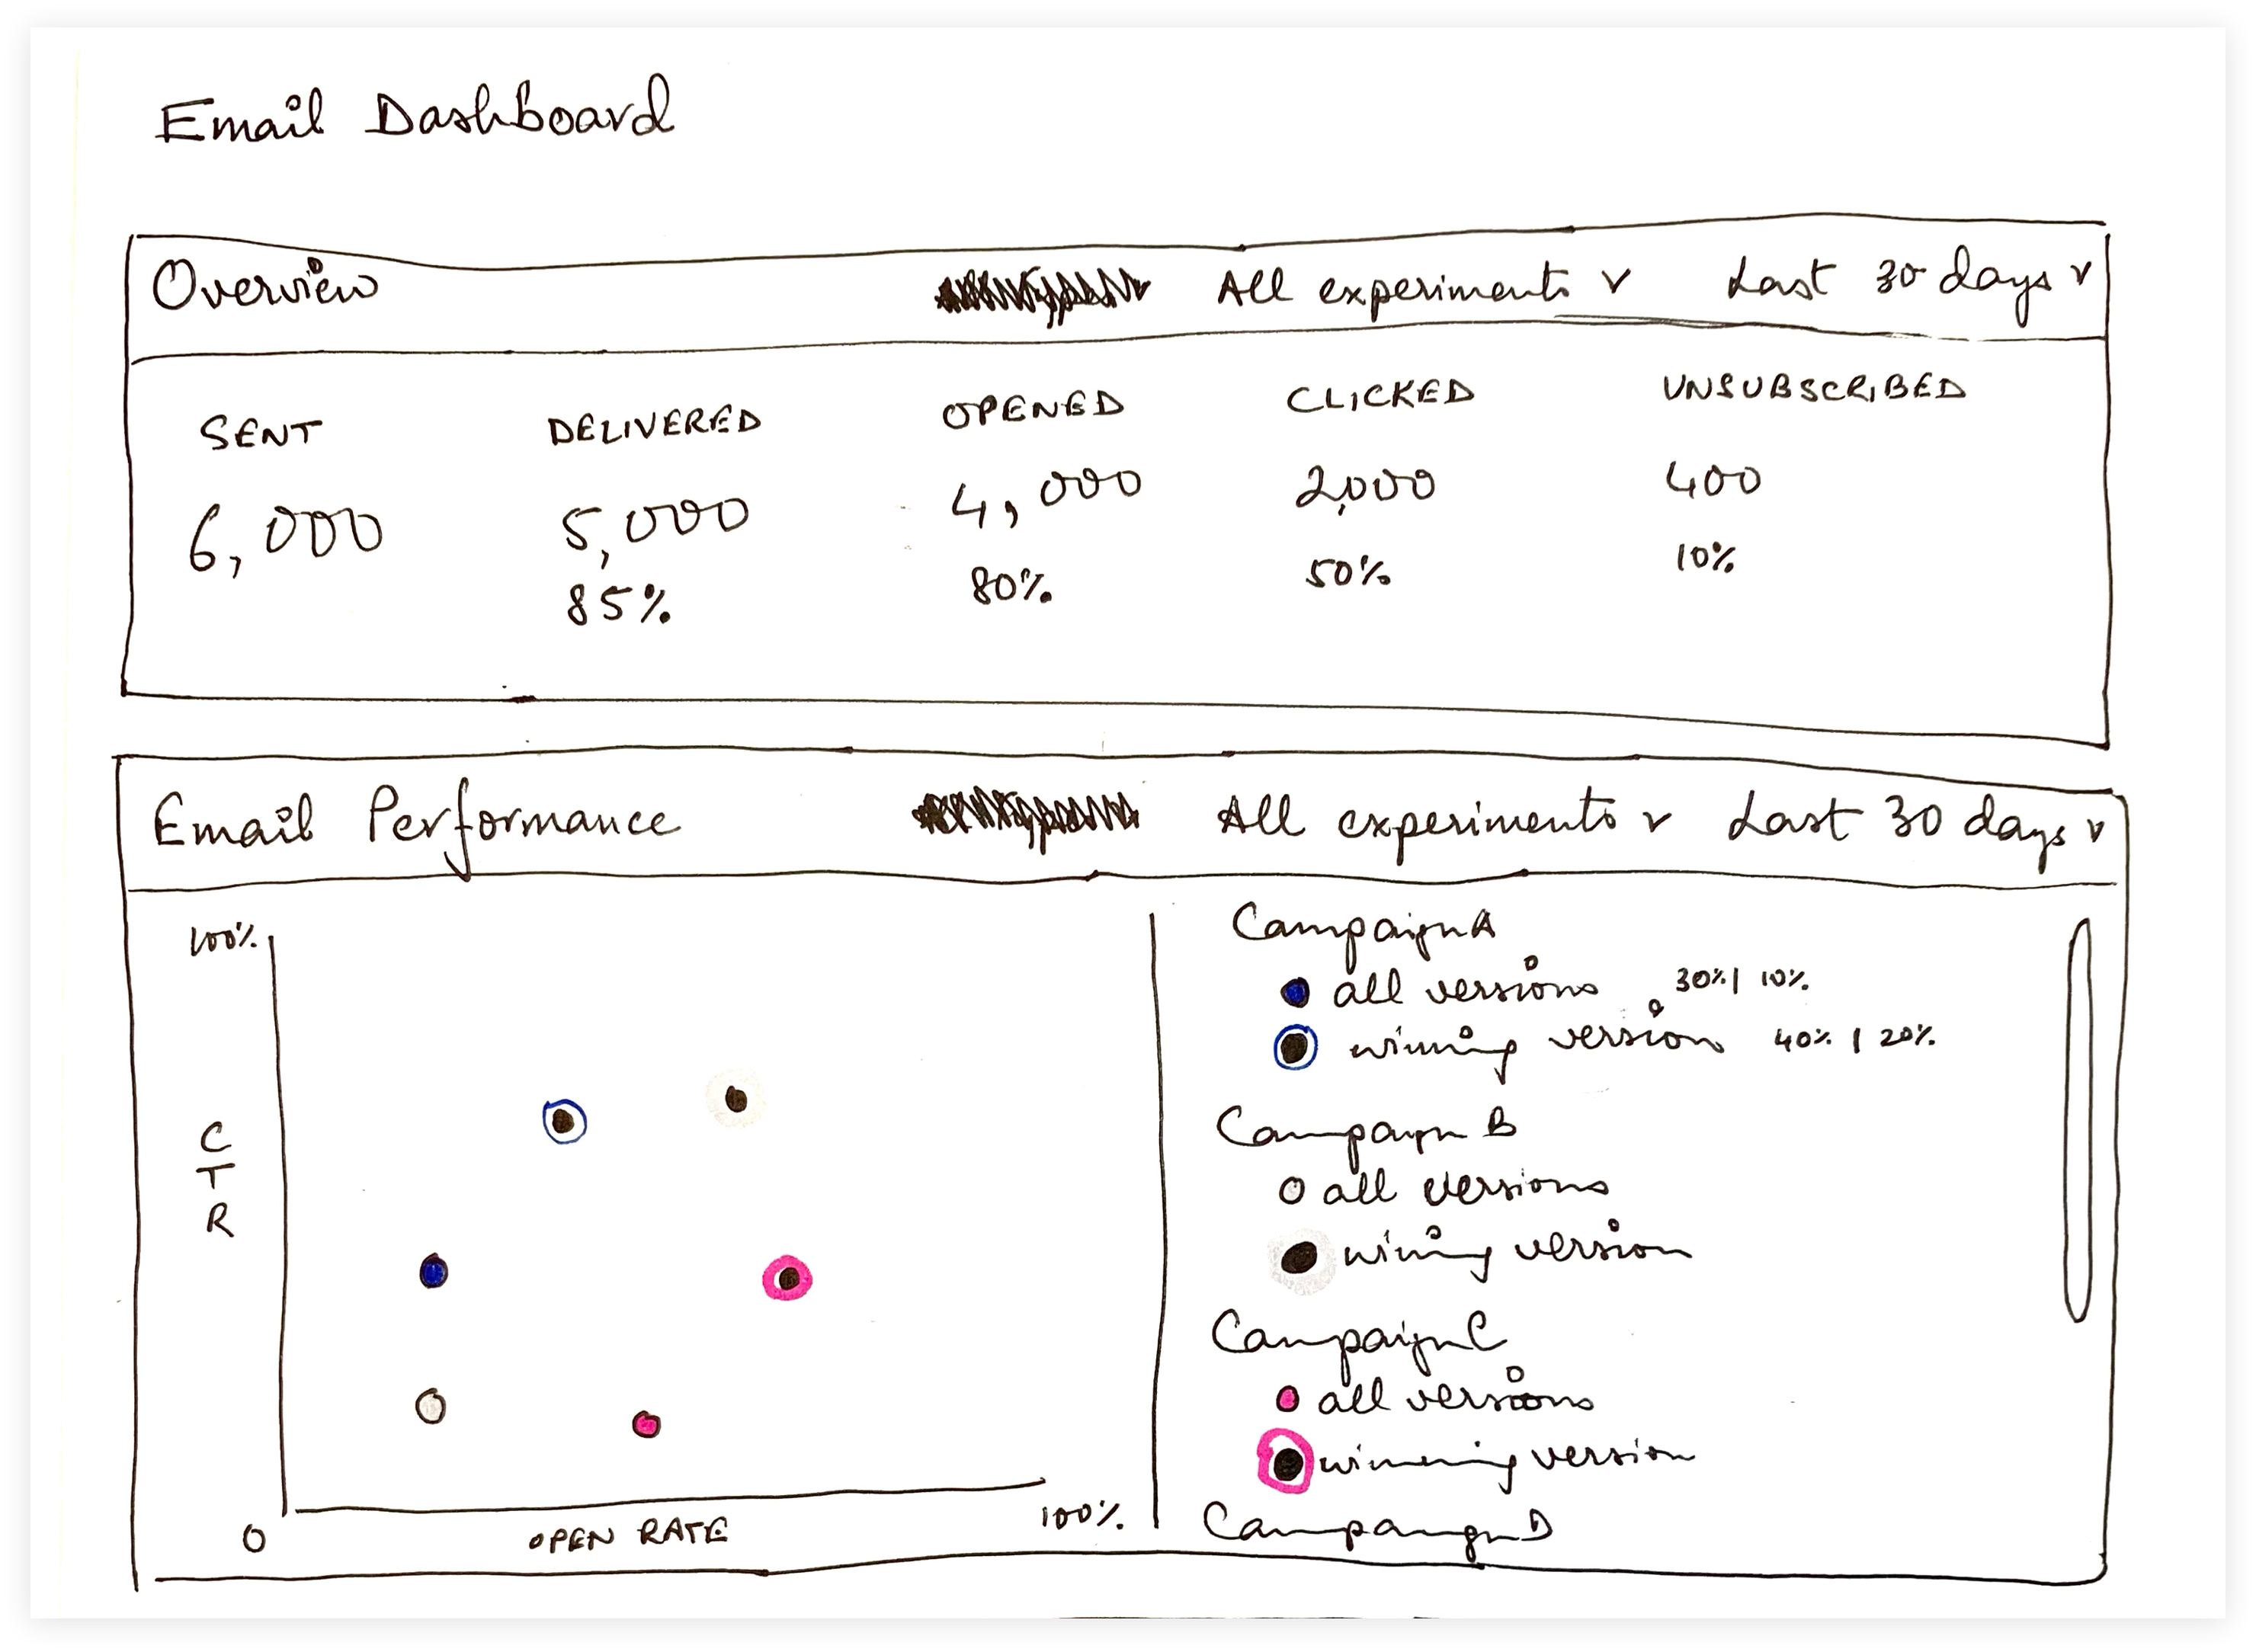 Email Dashboard
Overview All experiments v Last 30 days v
SENT DELIVERED OPENED CLICKED UNSUBSCRIBED
6,000 5,000 4,000 2,000 400
85% 80% 50% 10%
Email Performance All experiments v Last 30 days v
100%
CTR
0 OPEN RATE 100%
Campaign A
all versions 30% | 10%
winning version 40% | 20%
Campaign B
all versions
wining version
Campaign C
all versions
winning version
Campaign D